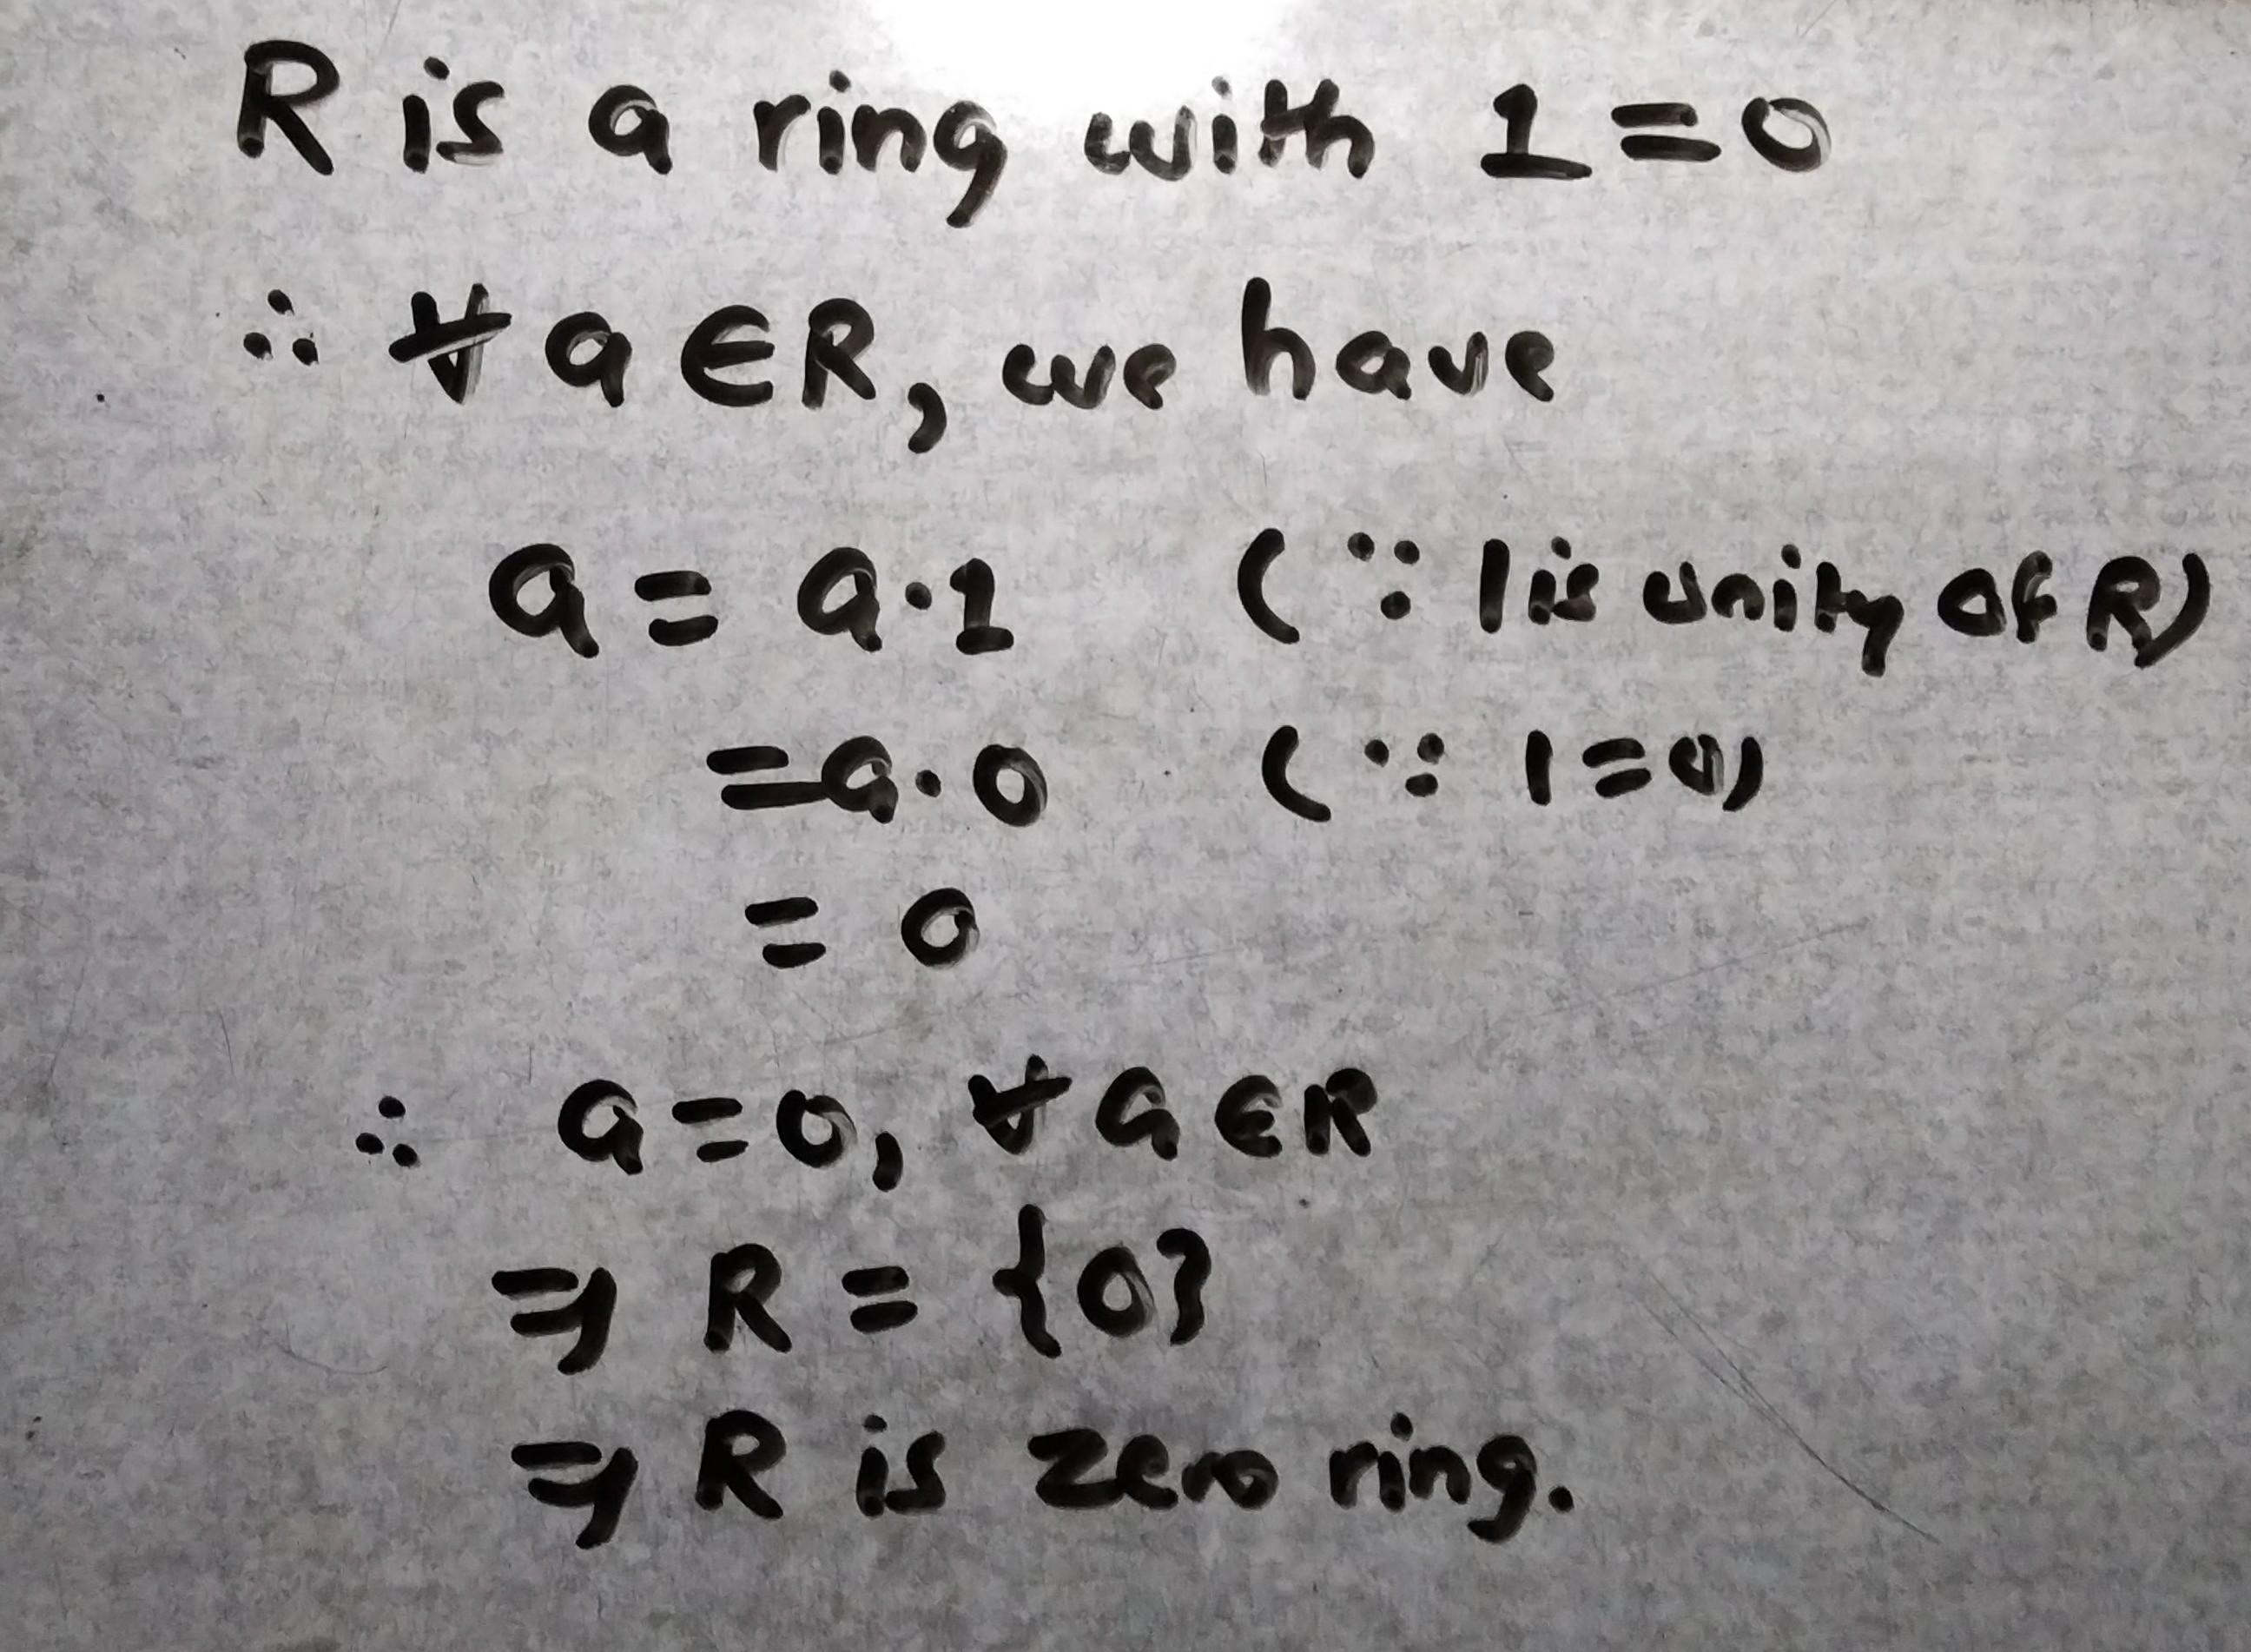 R is a ring with 1=0
∴ ∀ a ∈ R, we have
a = a·1 (∵ 1 is unity of R)
= a·0 (∵ 1=0)
= 0
∴ a=0, ∀ a ∈ R
⇒ R = {0}
⇒ R is zero ring.